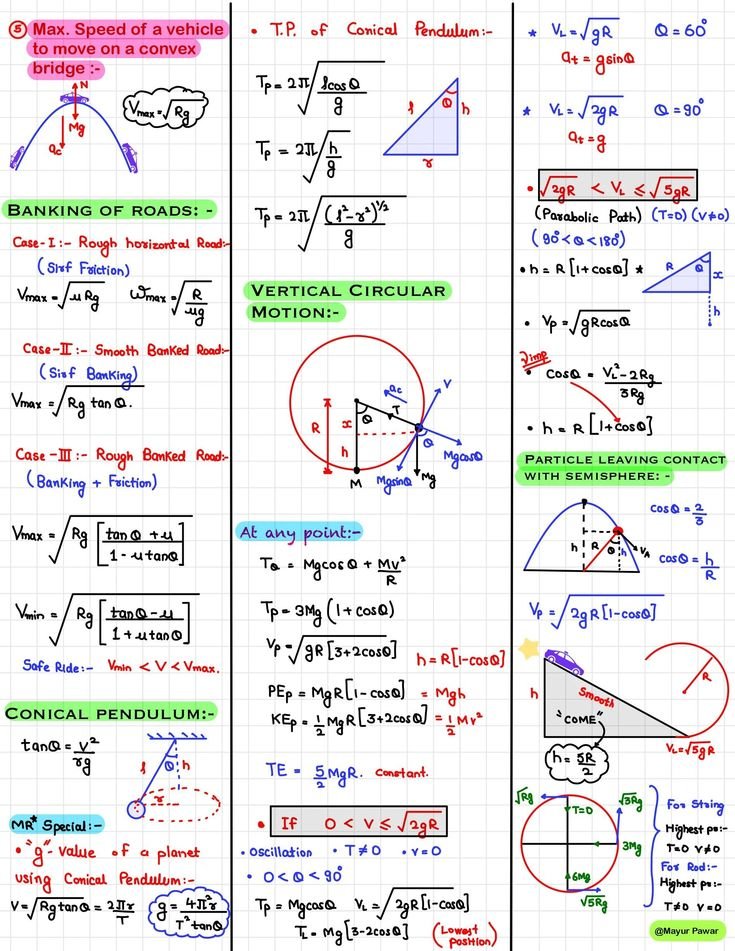 ⑤ Max. Speed of a vehicle
to move on a convex
bridge :-
N
Vmax = √Rg
Mg
ac
BANKING OF ROADS: -
Case-I :- Rough horizontal Road:-
(Sirf Friction)
Vmax = √μRg   ωmax = √(R/μg)
Case-II :- Smooth Banked Road:-
(Sirf Banking)
Vmax = √(Rg tanθ.)
Case-III :- Rough Banked Road:-
(Banking + Friction)
Vmax = √(Rg [(tanθ + μ)/(1 - μtanθ)])
Vmin = √(Rg [(tanθ - μ)/(1 + μtanθ)])
Safe Ride:- Vmin < V < Vmax.
CONICAL PENDULUM:-
tanθ = V²/rg
l θ h
r
MR* Special:-
• "g" value of a planet
using Conical Pendulum:-
V = √(Rg tanθ) = 2πr/T   g = 4π²r/(T² tanθ)
• T.P. of Conical Pendulum:-
Tp = 2π √(lcosθ/g)
l θ h
r
Tp = 2π √(h/g)
Tp = 2π √((l² - r²)^1/2/g)
VERTICAL CIRCULAR
MOTION:-
ac V
R x θ T
h θ
Mgcosθ
Mgsinθ Mg
M
At any point:-
Tθ = Mgcosθ + MV²/R
Tp = 3Mg(1 + cosθ)
Vp = √(gR[3+2cosθ])   h = R[1-cosθ]
PEp = MgR[1-cosθ] = Mgh
KEp = 1/2 MgR[3+2cosθ] = 1/2 Mv²
TE = 5/2 MgR. Constant.
• If 0 < V ≤ √2gR
• Oscillation • T≠0 • v=0
• 0 < θ < 90°
Tp = Mgcosθ   VL = √(2gR[1-cosθ])
TL = Mg[3-2cosθ] (Lowest position)
* VL = √gR   θ = 60°
at = gsinθ
* VL = √2gR   θ = 90°
at = g
• √2gR < VL ≤ √5gR
(Parabolic Path) (T=0) (V≠0)
(90° < θ < 180°)
• h = R[1+cosθ] *
R θ x
h
• Vp = √(gRcosθ)
Vimp
• cosθ = (VL² - 2Rg)/3Rg
• h = R[1+cosθ]
PARTICLE LEAVING CONTACT
WITH SEMISPHERE: -
cosθ = 2/3
h R θ h VA
cosθ = h/R
Vp = √(2gR[1-cosθ])
h Smooth R
"COME"
VL = √5gR
h = 5R/2
√Rg T=0 √3Rg
3Mg
6Mg
√5Rg
For String
Highest pt:-
T=0 V≠0
For Rod:-
Highest pt:-
T≠0 V=0
@Mayur Pawar